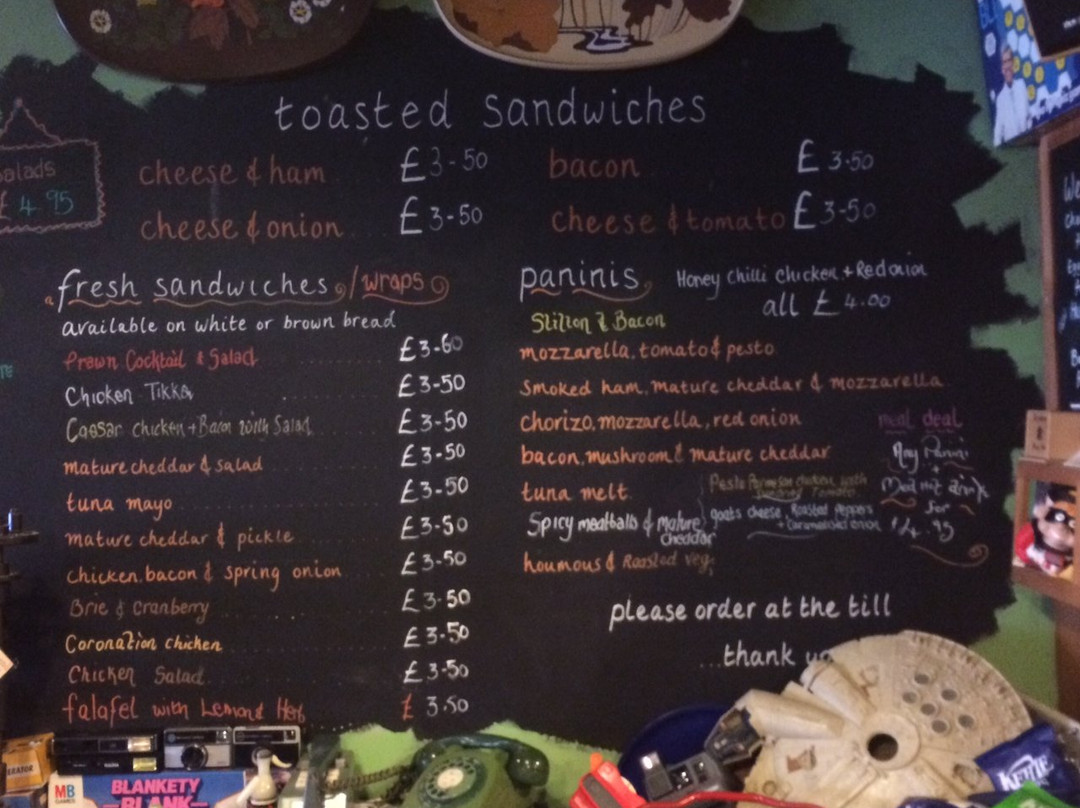 toasted sandwiches
cheese & ham £3-50
bacon £3.50
cheese & onion £3-50
cheese & tomato £3-50
salads
£4.95
fresh sandwiches / wraps
available on white or brown bread
Prawn Cocktail & Salad £3-60
Chicken Tikka £3-50
Caesar chicken + Bacon with Salad £3-50
mature cheddar & salad £3-50
tuna mayo £3-50
mature cheddar & pickle £3-50
chicken, bacon & spring onion £3-50
Brie & Cranberry £3-50
Coronation chicken £3-50
Chicken Salad £3-50
falafel with Lemon & £3.50
paninis
Honey chilli chicken + Red onion
all £4.00
Stilton & Bacon
mozzarella, tomato & pesto
Smoked ham, mature cheddar & mozzarella
chorizo, mozzarella, red onion
bacon, mushroom & mature cheddar
tuna melt
Spicy meatballs & mature cheddar
houmous & Roasted Veg
Pesto Parmesan chicken with
Tomato
goats cheese, Roasted peppers
+ Caramelised onion
meal deal
Any Panini
+
Med Hot drink
for
£4.95
please order at the till
...thank
MB
GAMES
BLANKETY
BLANK
KETTLE